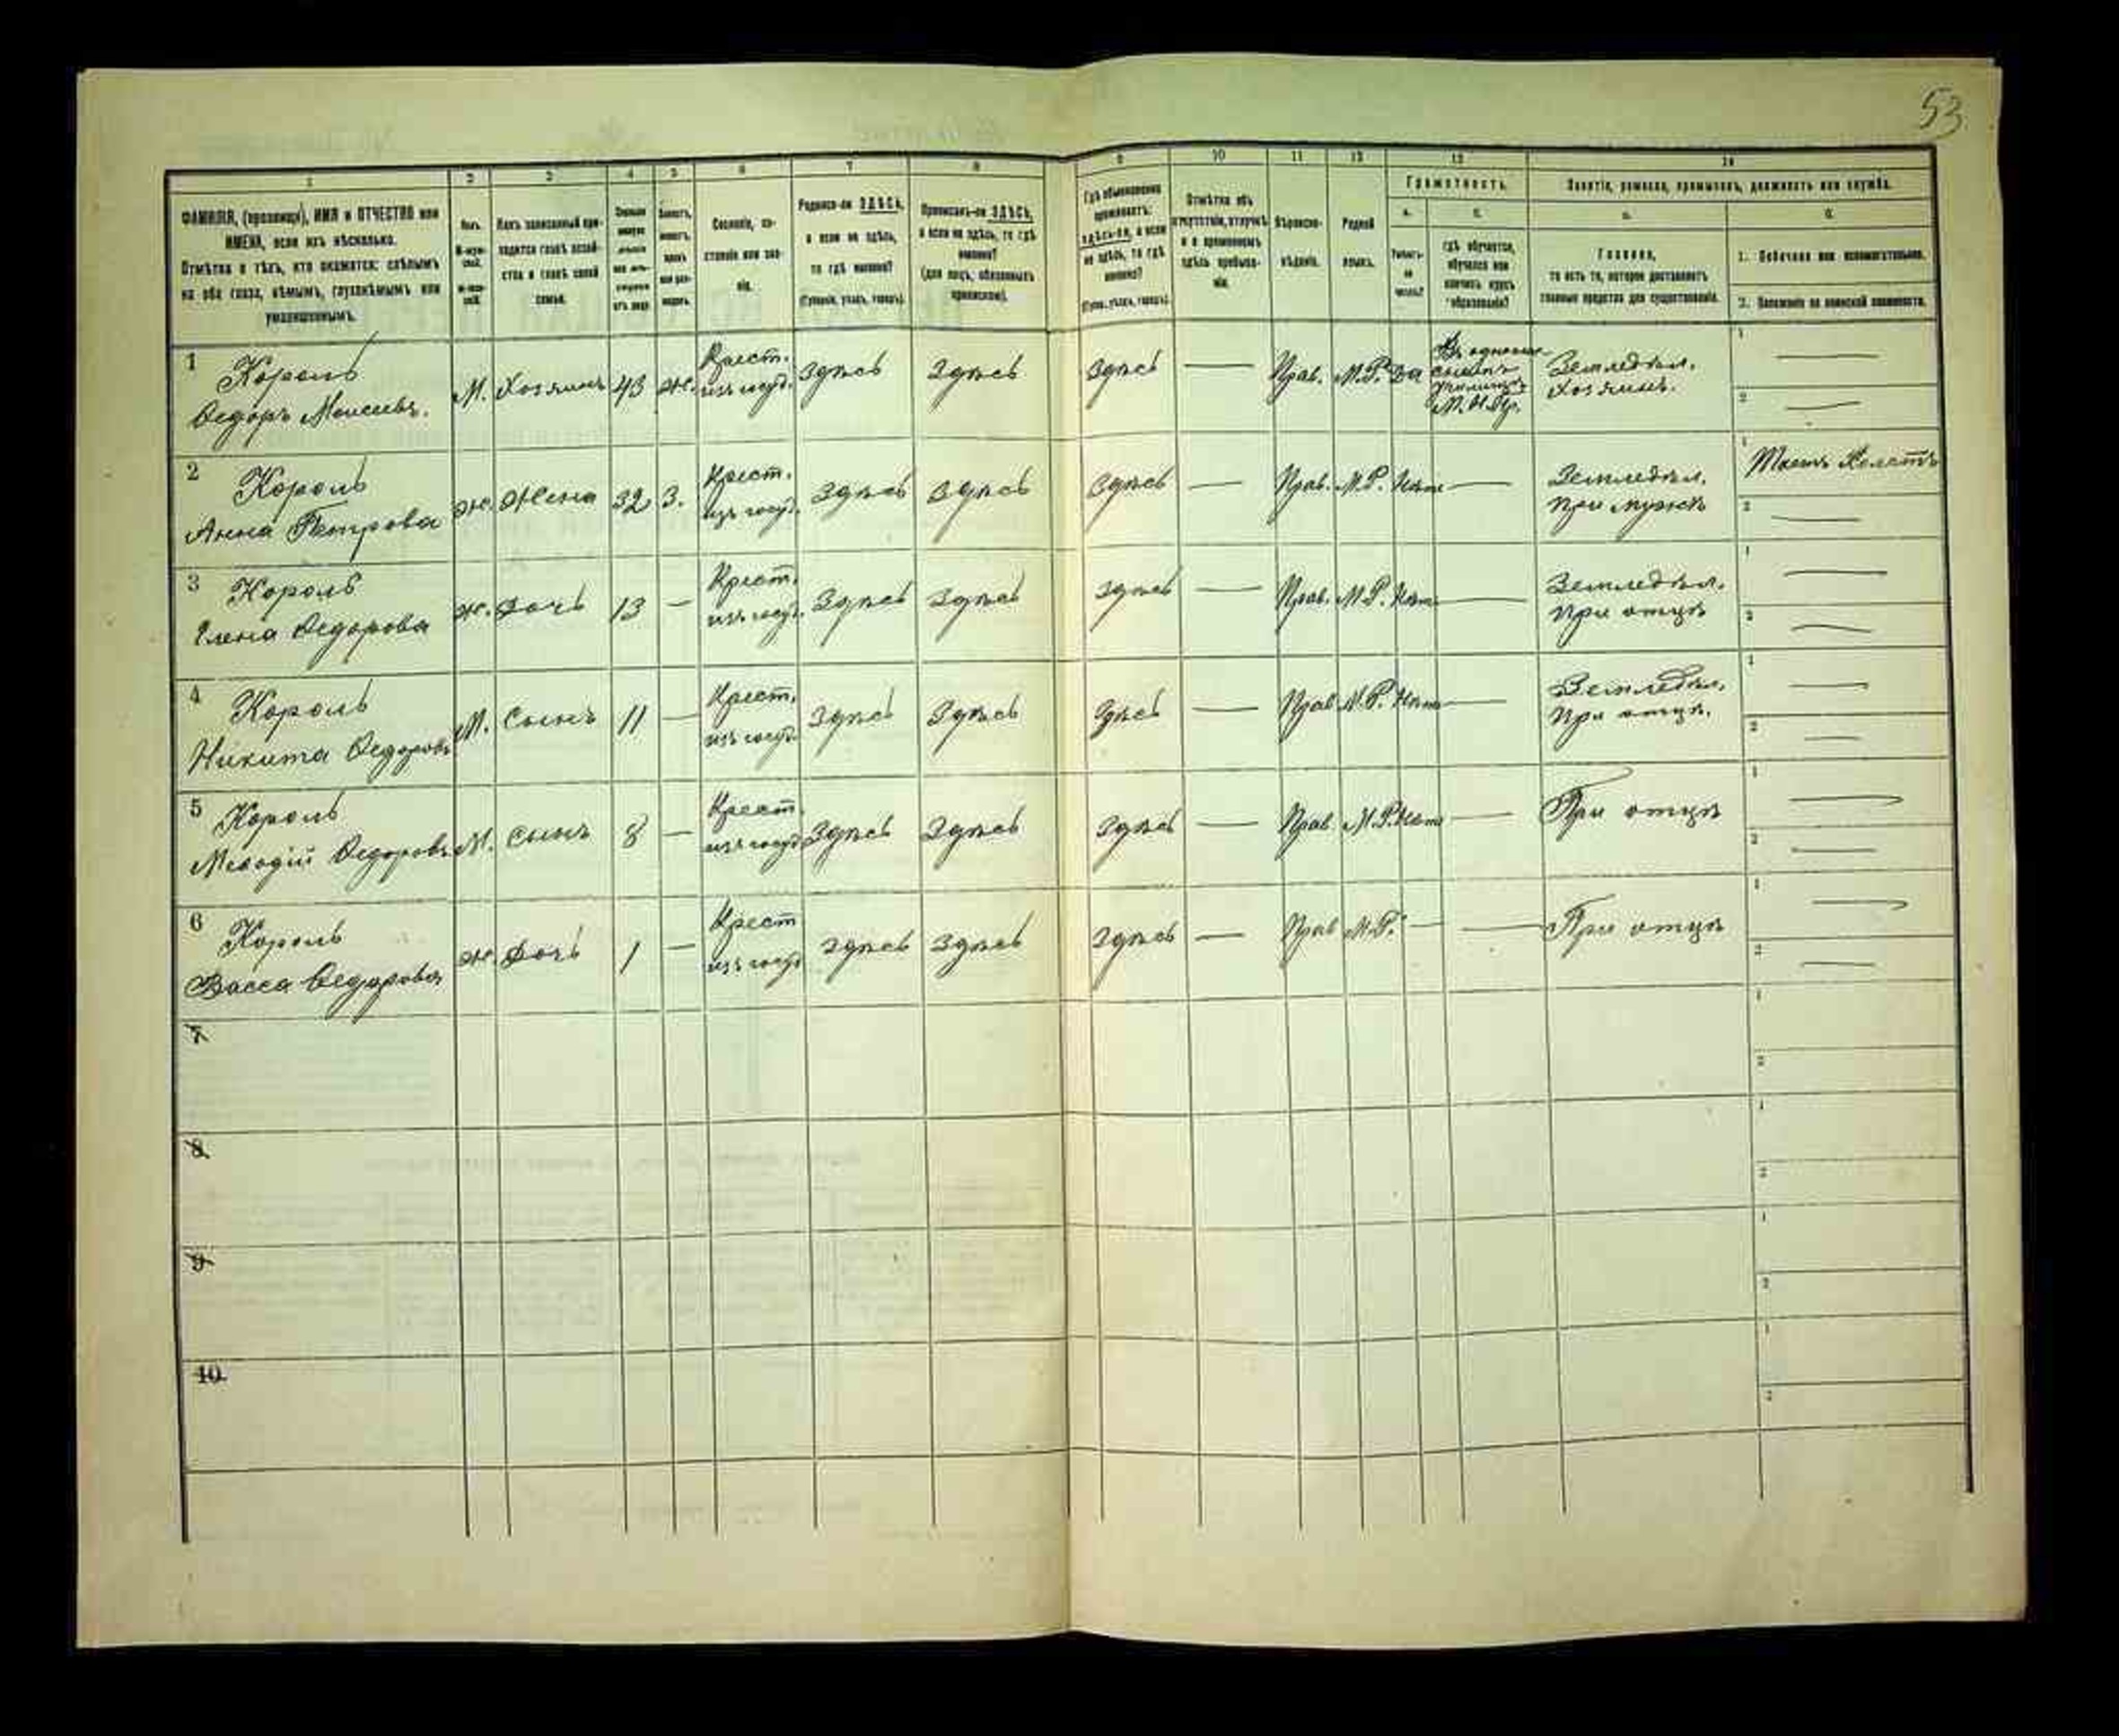 53
1 2 3 4 5 6 7 8 9 10 11 12 13 14
ФАМИЛІЯ, (прозвище), ИМЯ и ОТЧЕСТВО или
ИМЕНА, если ихъ нѣсколько.
Отмѣтка о тѣхъ, кто окажется: слѣпымъ
на оба глаза, нѣмымъ, глухонѣмымъ или
умалишеннымъ.
Полъ.
Какъ записанный при-
ходится главѣ хозяй-
ства и главѣ своей
семьи.
Сословіе, со-
стояніе или зва-
ніе.
Родился-ли ЗДѢСЬ,
а если не здѣсь,
то гдѣ именно?
(Губернія, уѣздъ, городъ).
Приписанъ-ли ЗДѢСЬ,
а если не здѣсь, то гдѣ
именно?
(для лицъ, обязанныхъ
припискою).
Гдѣ обыкновенно
проживаетъ:
здѣсь-ли, а если
не здѣсь, то гдѣ
именно?
(Губ., уѣздъ, городъ).
Отмѣтка объ
отсутствіи, отлучкѣ
и о временномъ
здѣсь пребыва-
ніи.
Вѣроиспо-
вѣданіе.
Родной
языкъ.
Грамотность.
а. б.
Умѣетъ-
ли
читать?
гдѣ обучается,
обучался или
кончилъ курсъ
образованія?
Занятія, ремесло, промыселъ, должность или служба.
а. б.
Главное,
то есть то, которое доставляетъ
главныя средства для существованія.
1. Побочное или вспомогательное.
2. Положеніе по воинской повинности.
1 Король
Федоръ Моисеевъ.
М. Хозяинъ 43 Ж. Крест. изъ госуд. Здѣсь Здѣсь Здѣсь — Прав. М.Р. Да
училищѣ
М. Н. Пр.
Земледѣл.
Хозяинъ.
1 —
2 —
2 Король
Анна Петрова
Ж. Жена 32 З. Крест. изъ госуд. Здѣсь Здѣсь Здѣсь — Прав. М.Р. Нѣт —
Земледѣл.
При мужѣ
1 Ткетъ Холстъ
2 —
3 Король
Елена Федорова
Ж. Дочь 13 — Крест. изъ госуд. Здѣсь Здѣсь Здѣсь — Прав. М.Р. Нѣт —
Земледѣл.
При отцѣ
1 —
2 —
4 Король
Никита Федоровъ
М. Сынъ 11 — Крест. изъ госуд. Здѣсь Здѣсь Здѣсь — Прав М.Р. Нѣт —
Земледѣл.
При отцѣ.
1 —
2 —
5 Король
Меѳодій Федоровъ
М. Сынъ 8 — Крест. изъ госуд Здѣсь Здѣсь Здѣсь — Прав М.Р. Нѣт —
При отцѣ
1 —
2 —
6 Король
Васса Федорова
Ж. Дочь 1 — Крест изъ госуд Здѣсь Здѣсь Здѣсь — Прав М.Р. — —
При отцѣ
1 —
2 —
7
1
2
8
1
2
9
1
2
10
1
2